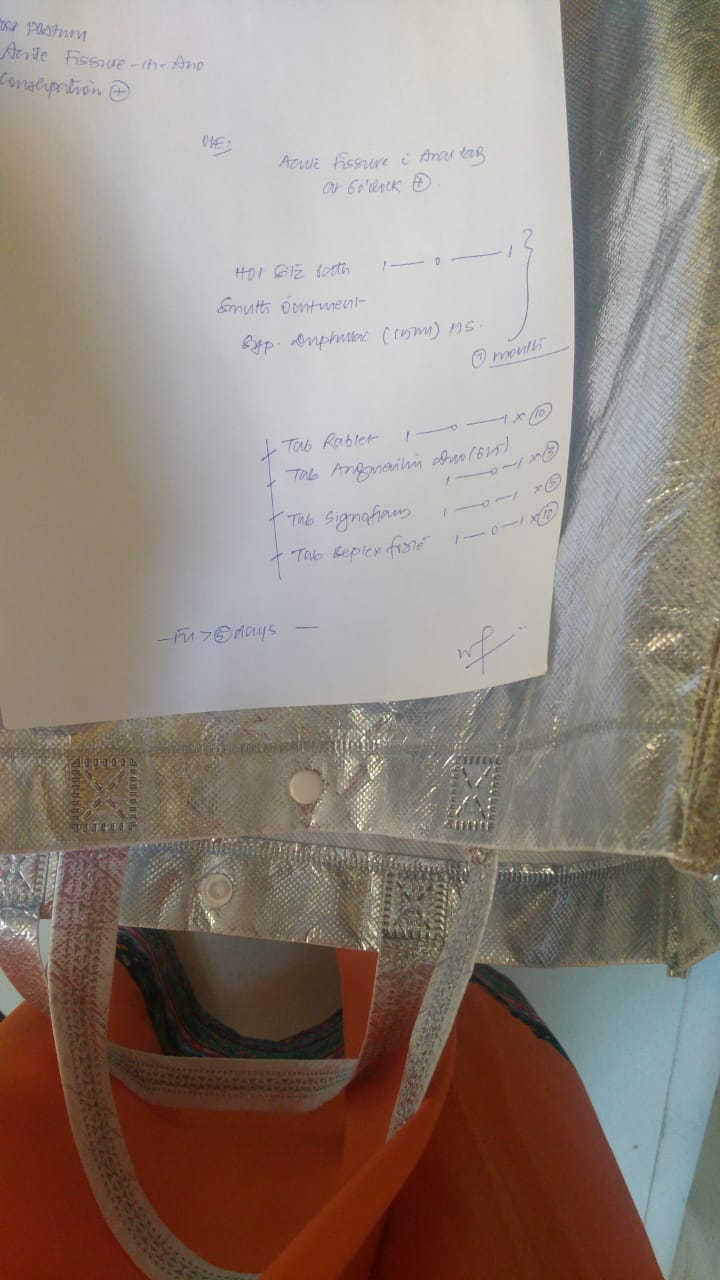 Partum
Acute Fissure-in-Ano
Constipation +
O/E:
Acute Fissure c Anal tag
at 6 o'clock +
Hot Sitz bath 1—0—1
Smuth Ointment
Syp. Duphalac (15ml) HS.
1 month
Tab 1—0—1 x 10
Tab 1—0—1 x 3
Tab Signoflam 1—0—1 x 5
Tab Beplex forte 1—0—1 x 10
—FU > 5 days —